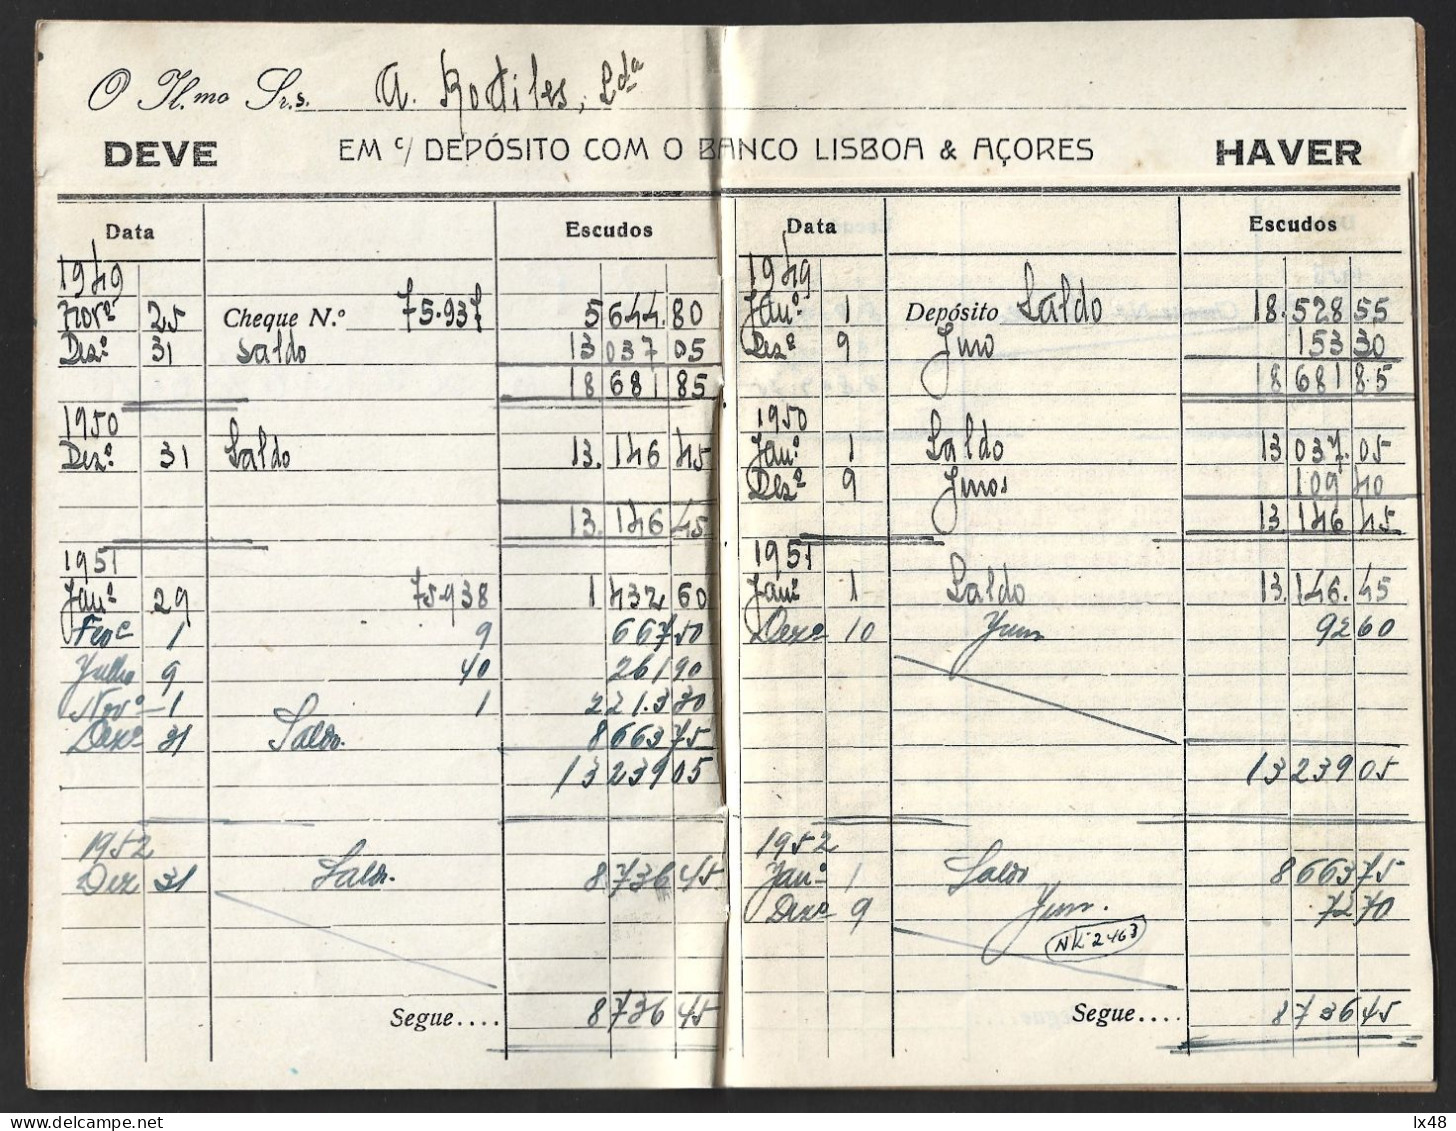 O Il.mo Sr.s. A. Rodiles, Lda
DEVE EM c/ DEPÓSITO COM O BANCO LISBOA & AÇORES HAVER
Data Escudos
1949
Novo 25 Cheque N.º 75.937 5 644.80
Dezo 31 Saldo 13 037 05
18 681 85
1950
Dezo 31 Saldo 13.146 45
13.146 45
1951
Jano 29 75.938 1 432 60
Fevo 1 9 667 50
Julho 9 40 261 90
Novo 1 1 2 213 30
Dezo 31 Saldo. 8 663 75
13 239 05
1952
Dez 31 Saldo. 8 736 45
Segue.... 8 736 45
Data Escudos
1949
Jano 1 Depósito Saldo 18.528 55
Dezo 9 Juro 153 30
18 681 85
1950
Jano 1 Saldo 13 037.05
Dezo 9 Juros 109 40
13.146 45
1951
Jano 1 Saldo 13.146.45
Dezo 10 Juros 92 60
13 239 05
1952
Jano 1 Saldo 8 663 75
Dezo 9 Juros. 72 70
Segue.... 8 736 45
lx48